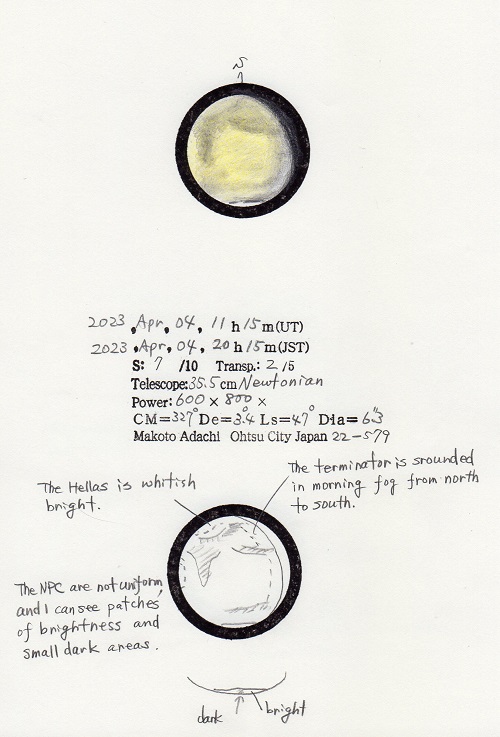 S
2023, Apr, 04, 11 h 15 m(UT)
2023, Apr, 04, 20 h 15 m(JST)
S: 7 /10 Transp.: 2 /5
Telescope: 35.5 cm Newtonian
Power: 600 × 800 ×
CM=327° De=3.4° Ls=47° Dia=6."3
Makoto Adachi Ohtsu City Japan 22-579
The Hellas is whitish
bright.
The terminator is srounded
in morning fog from north
to south.
The NPC are not uniform,
and I can see patches
of brightness and
small dark areas.
dark bright